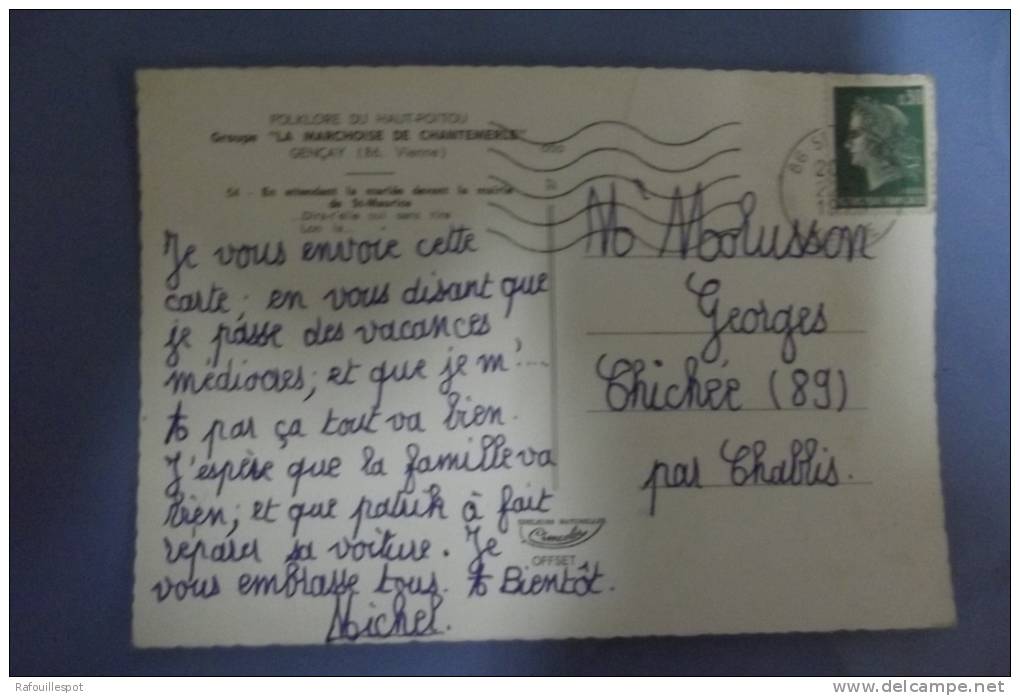 FOLKLORE DU HAUT-POITOU
Groupe "LA MARCHOISE DE CHANTEMERLE"
GENÇAY (86. Vienne)
54 - En attendant la mariée devant la mairie
de St-Maurice
...Dira-t'elle oui sans rire
Lon la...
Je vous envoie cette
carte; en vous disant que
je passe des vacances
médiocres; et que je m'....
A par ça tout va bien.
J'espère que la famille va
bien; et que patrik à fait
reparer sa voiture. Je
vous embrasse tous. A Bientôt.
Michel.
0,30
86
M Molusson
Georges
Chichée (89)
par Chablis.
OFFSET
Rafouillespot
www.delcampe.net